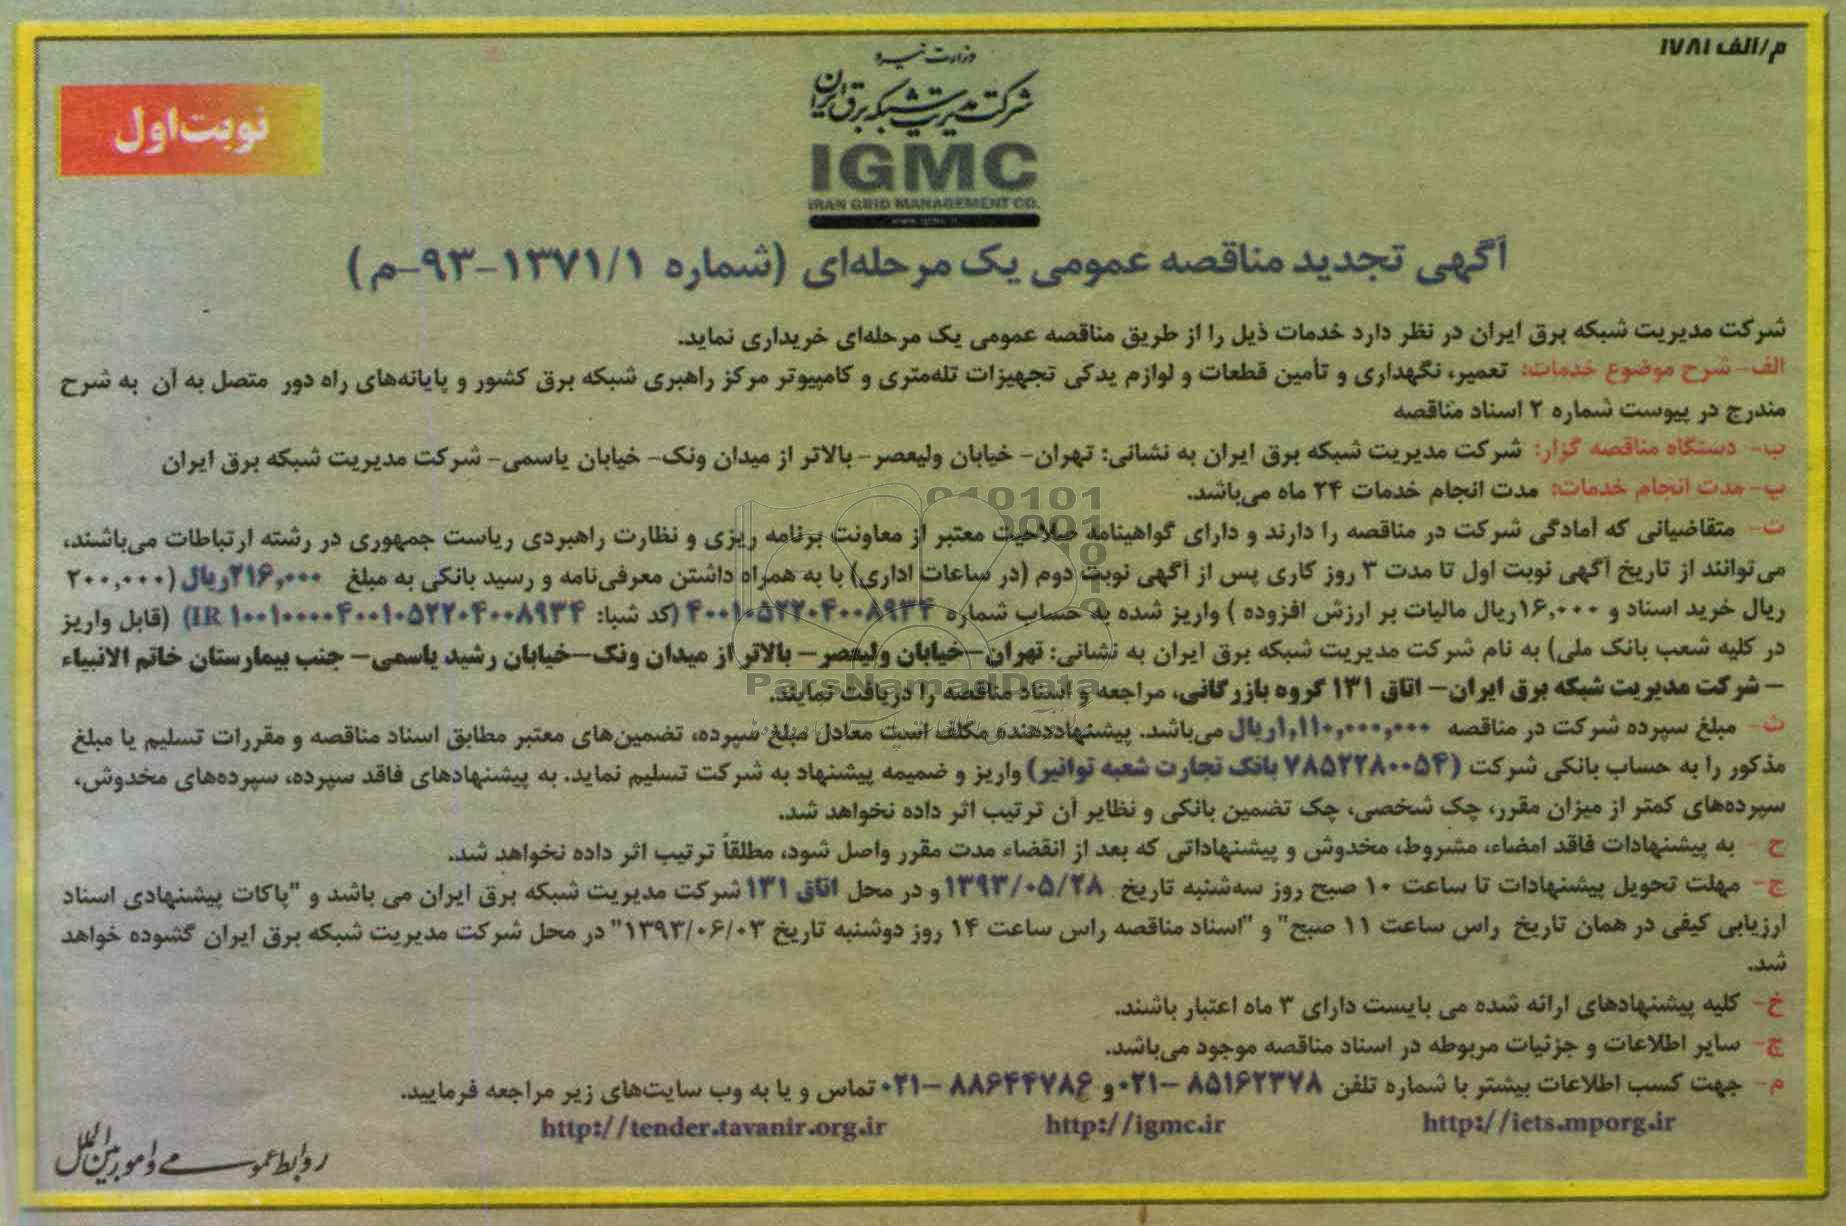 م/الف ۱۷۸۱
وزارت نیرو
شرکت مدیریت شبکه برق ایران
IGMC
IRAN GRID MANAGEMENT CO.
نوبت اول
آگهی تجدید مناقصه عمومی یک مرحله‌ای (شماره ۱۳۷۱/۱-۹۳-م)
شرکت مدیریت شبکه برق ایران در نظر دارد خدمات ذیل را از طریق مناقصه عمومی یک مرحله‌ای خریداری نماید.
الف- شرح موضوع خدمات: تعمیر، نگهداری و تأمین قطعات و لوازم یدکی تجهیزات تله‌متری و کامپیوتر مرکز راهبری شبکه برق کشور و پایانه‌های راه دور متصل به آن به شرح
مندرج در پیوست شماره ۲ اسناد مناقصه
ب- دستگاه مناقصه گزار: شرکت مدیریت شبکه برق ایران به نشانی: تهران- خیابان ولیعصر- بالاتر از میدان ونک- خیابان یاسمی- شرکت مدیریت شبکه برق ایران
پ- مدت انجام خدمات: مدت انجام خدمات ۲۴ ماه می‌باشد.
ت- متقاضیانی که آمادگی شرکت در مناقصه را دارند و دارای گواهینامه صلاحیت معتبر از معاونت برنامه ریزی و نظارت راهبردی ریاست جمهوری در رشته ارتباطات می‌باشند،
می‌توانند از تاریخ آگهی نوبت اول تا مدت ۳ روز کاری پس از آگهی نوبت دوم (در ساعات اداری) با به همراه داشتن معرفی‌نامه و رسید بانکی به مبلغ ۲۱۶,۰۰۰ریال (۲۰۰,۰۰۰
ریال خرید اسناد و ۱۶,۰۰۰ریال مالیات بر ارزش افزوده ) واریز شده به حساب شماره ۴۰۰۱۰۵۲۲۰۴۰۰۸۹۳۴ (کد شبا: IR ۱۰۰۱۰۰۰۰۴۰۰۱۰۵۲۲۰۴۰۰۸۹۳۴) (قابل واریز
در کلیه شعب بانک ملی) به نام شرکت مدیریت شبکه برق ایران به نشانی: تهران-خیابان ولیعصر- بالاتر از میدان ونک-خیابان رشید یاسمی- جنب بیمارستان خاتم الانبیاء
- شرکت مدیریت شبکه برق ایران- اتاق ۱۳۱ گروه بازرگانی، مراجعه و اسناد مناقصه را دریافت نمایند.
ث- مبلغ سپرده شرکت در مناقصه ۱,۱۱۰,۰۰۰,۰۰۰ریال می‌باشد. پیشنهاددهنده مکلف است معادل مبلغ سپرده، تضمین‌های معتبر مطابق اسناد مناقصه و مقررات تسلیم یا مبلغ
مذکور را به حساب بانکی شرکت (۷۸۵۲۲۸۰۰۵۴ بانک تجارت شعبه توانیر) واریز و ضمیمه پیشنهاد به شرکت تسلیم نماید. به پیشنهادهای فاقد سپرده، سپرده‌های مخدوش،
سپرده‌های کمتر از میزان مقرر، چک شخصی، چک تضمین بانکی و نظایر آن ترتیب اثر داده نخواهد شد.
ح- به پیشنهادات فاقد امضاء، مشروط، مخدوش و پیشنهاداتی که بعد از انقضاء مدت مقرر واصل شود، مطلقاً ترتیب اثر داده نخواهد شد.
ج- مهلت تحویل پیشنهادات تا ساعت ۱۰ صبح روز سه‌شنبه تاریخ ۱۳۹۳/۰۵/۲۸ و در محل اتاق ۱۳۱ شرکت مدیریت شبکه برق ایران می باشد و "پاکات پیشنهادی اسناد
ارزیابی کیفی در همان تاریخ راس ساعت ۱۱ صبح" و "اسناد مناقصه راس ساعت ۱۴ روز دوشنبه تاریخ ۱۳۹۳/۰۶/۰۳" در محل شرکت مدیریت شبکه برق ایران گشوده خواهد
شد.
خ- کلیه پیشنهادهای ارائه شده می بایست دارای ۳ ماه اعتبار باشند.
چ- سایر اطلاعات و جزئیات مربوطه در اسناد مناقصه موجود می‌باشد.
م- جهت کسب اطلاعات بیشتر با شماره تلفن ۸۵۱۶۲۳۷۸ -۰۲۱ و ۸۸۶۴۴۷۸۶ -۰۲۱ تماس و یا به وب سایت‌های زیر مراجعه فرمایید.
http://iets.mporg.ir http://igmc.ir http://tender.tavanir.org.ir
روابط عمومی و امور بین الملل
ParsNamadData